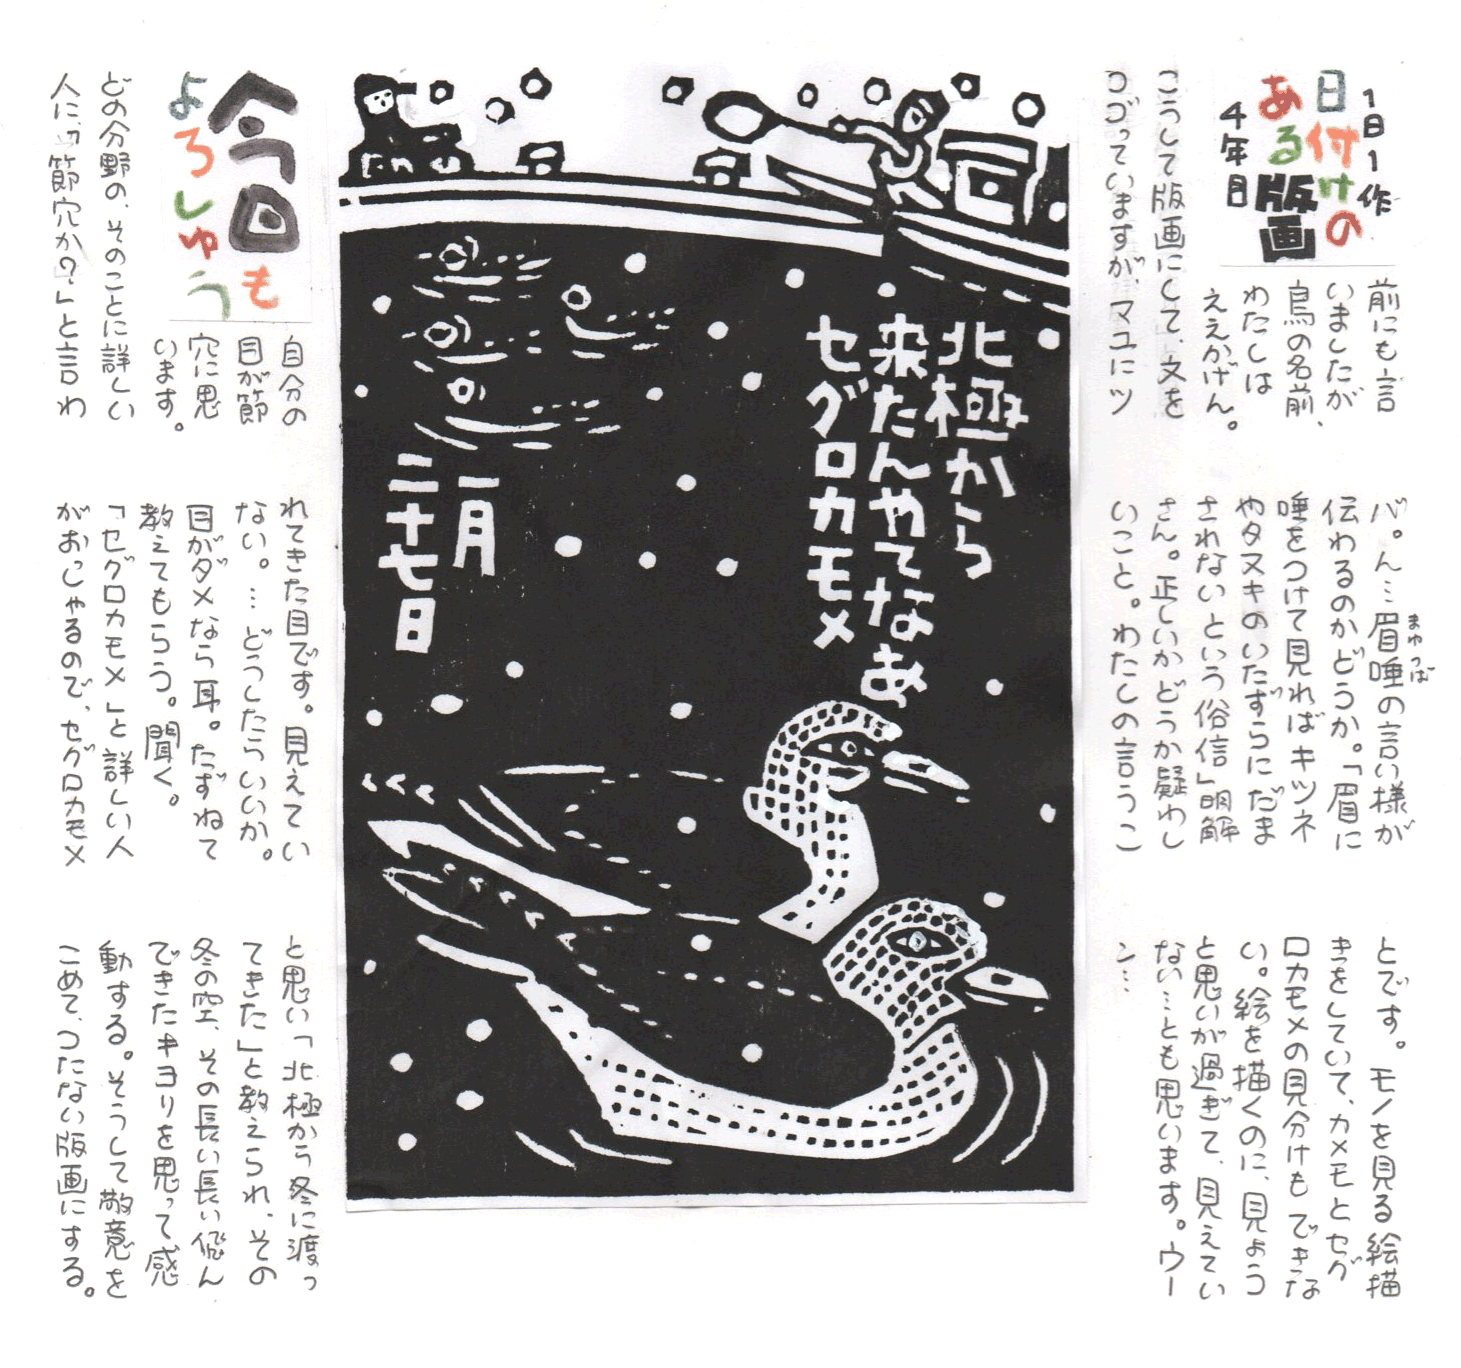 1日1作
日付けの
ある版画
4年目
前にも言
いましたが
鳥の名前、
わたしは
ええかげん。
こうして版画にして、文を
ロゴっていますが、マユにツ
バ。ん…眉唾の言い様が
まゆつば
伝わるのかどうか。「眉に
唾をつけて見ればキツネ
やタヌキのいたずらにだま
されないという俗信」明解
さん。正しいかどうか疑わし
いこと。わたしの言うこ
とです。モノを見る絵描
きをしていて、カメモとセグ
ロカモメの見分けもできな
い。絵を描くのに、見よう
と思いが過ぎて、見えてい
ない…とも思います。ウー
ン…
北極から
来たんやてなあ
セグロカモメ
一月
二十七日
今日も
よろしゅう
自分の
目が節
穴に思
います。
どの分野の、そのことに詳しい
人に「節穴か?」と言わ
れてきた目です。見えてい
ない。…どうしたらいいか。
目がダメなら耳。たずねて
教えてもらう。聞く。
「セグロカモメ」と詳しい人
がおっしゃるので、セグロカモメ
と思い「北極から冬に渡っ
てきた」と教えられ、その
冬の空、その長い長い飛ん
できたキョリを思って感
動する。そうして敬意を
こめて、つたない版画にする。